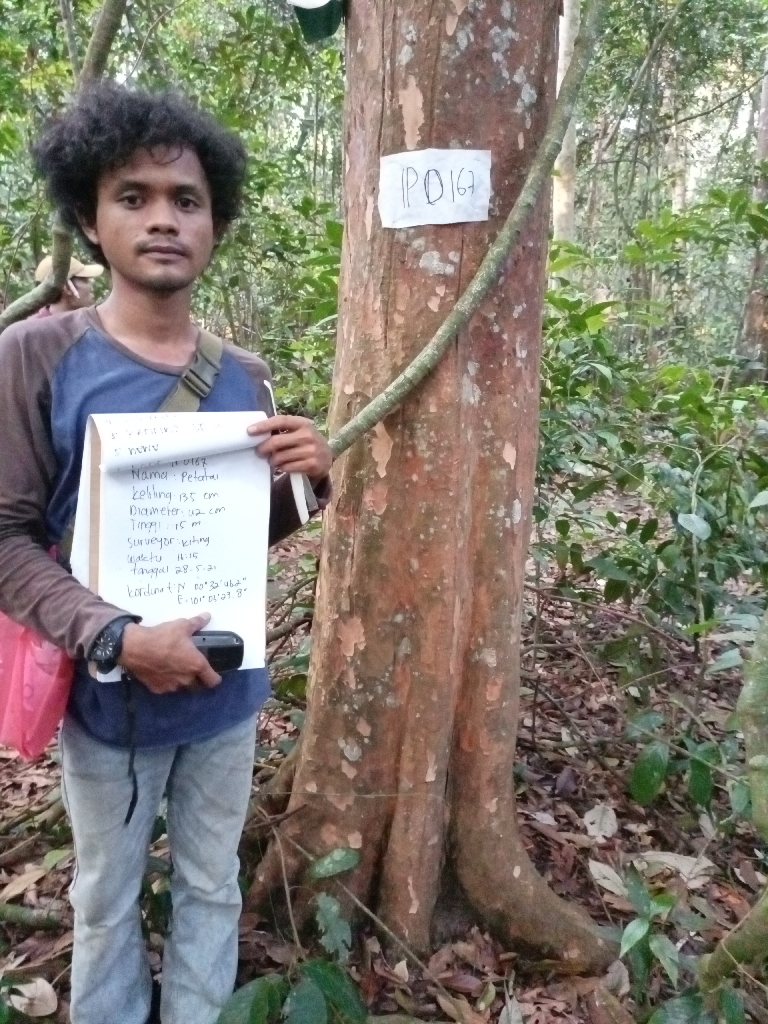 IPD167
Nama : Petatai
Keliling : 135 cm
Diameter : 42 cm
Tinggi : 15 m
Surveyor : Kiting
Waktu 16:15
Tanggal 28-5-21
Kordinat : N 00°32'46.2"
E=101°03'23.8"